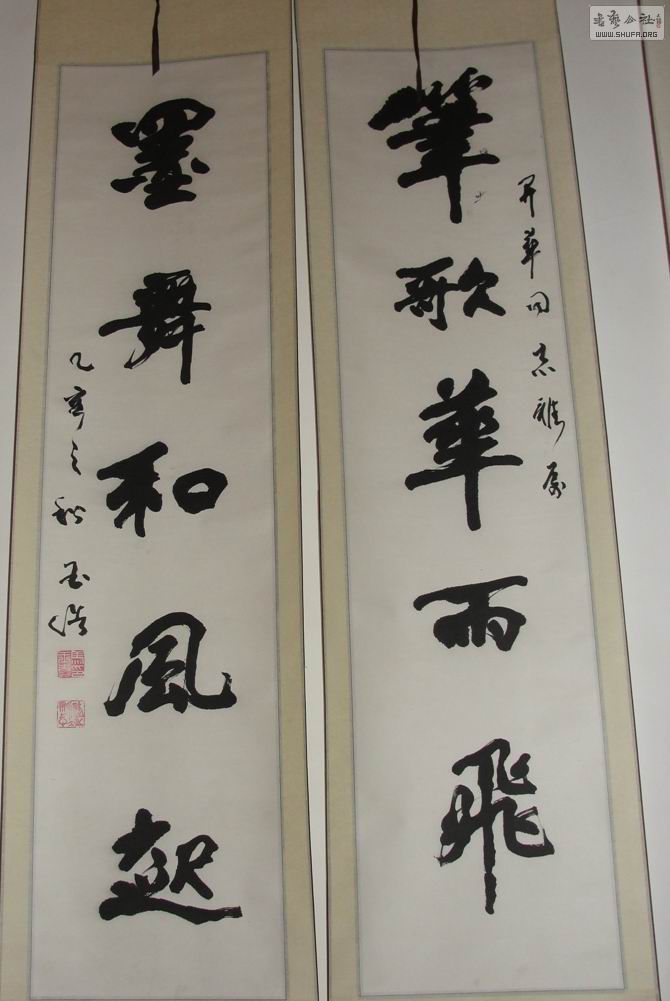 筆歌華雨飛
昇華同志雅属
墨舞和風起
乙亥之秋
書藝公社
WWW.SHUFA.ORG